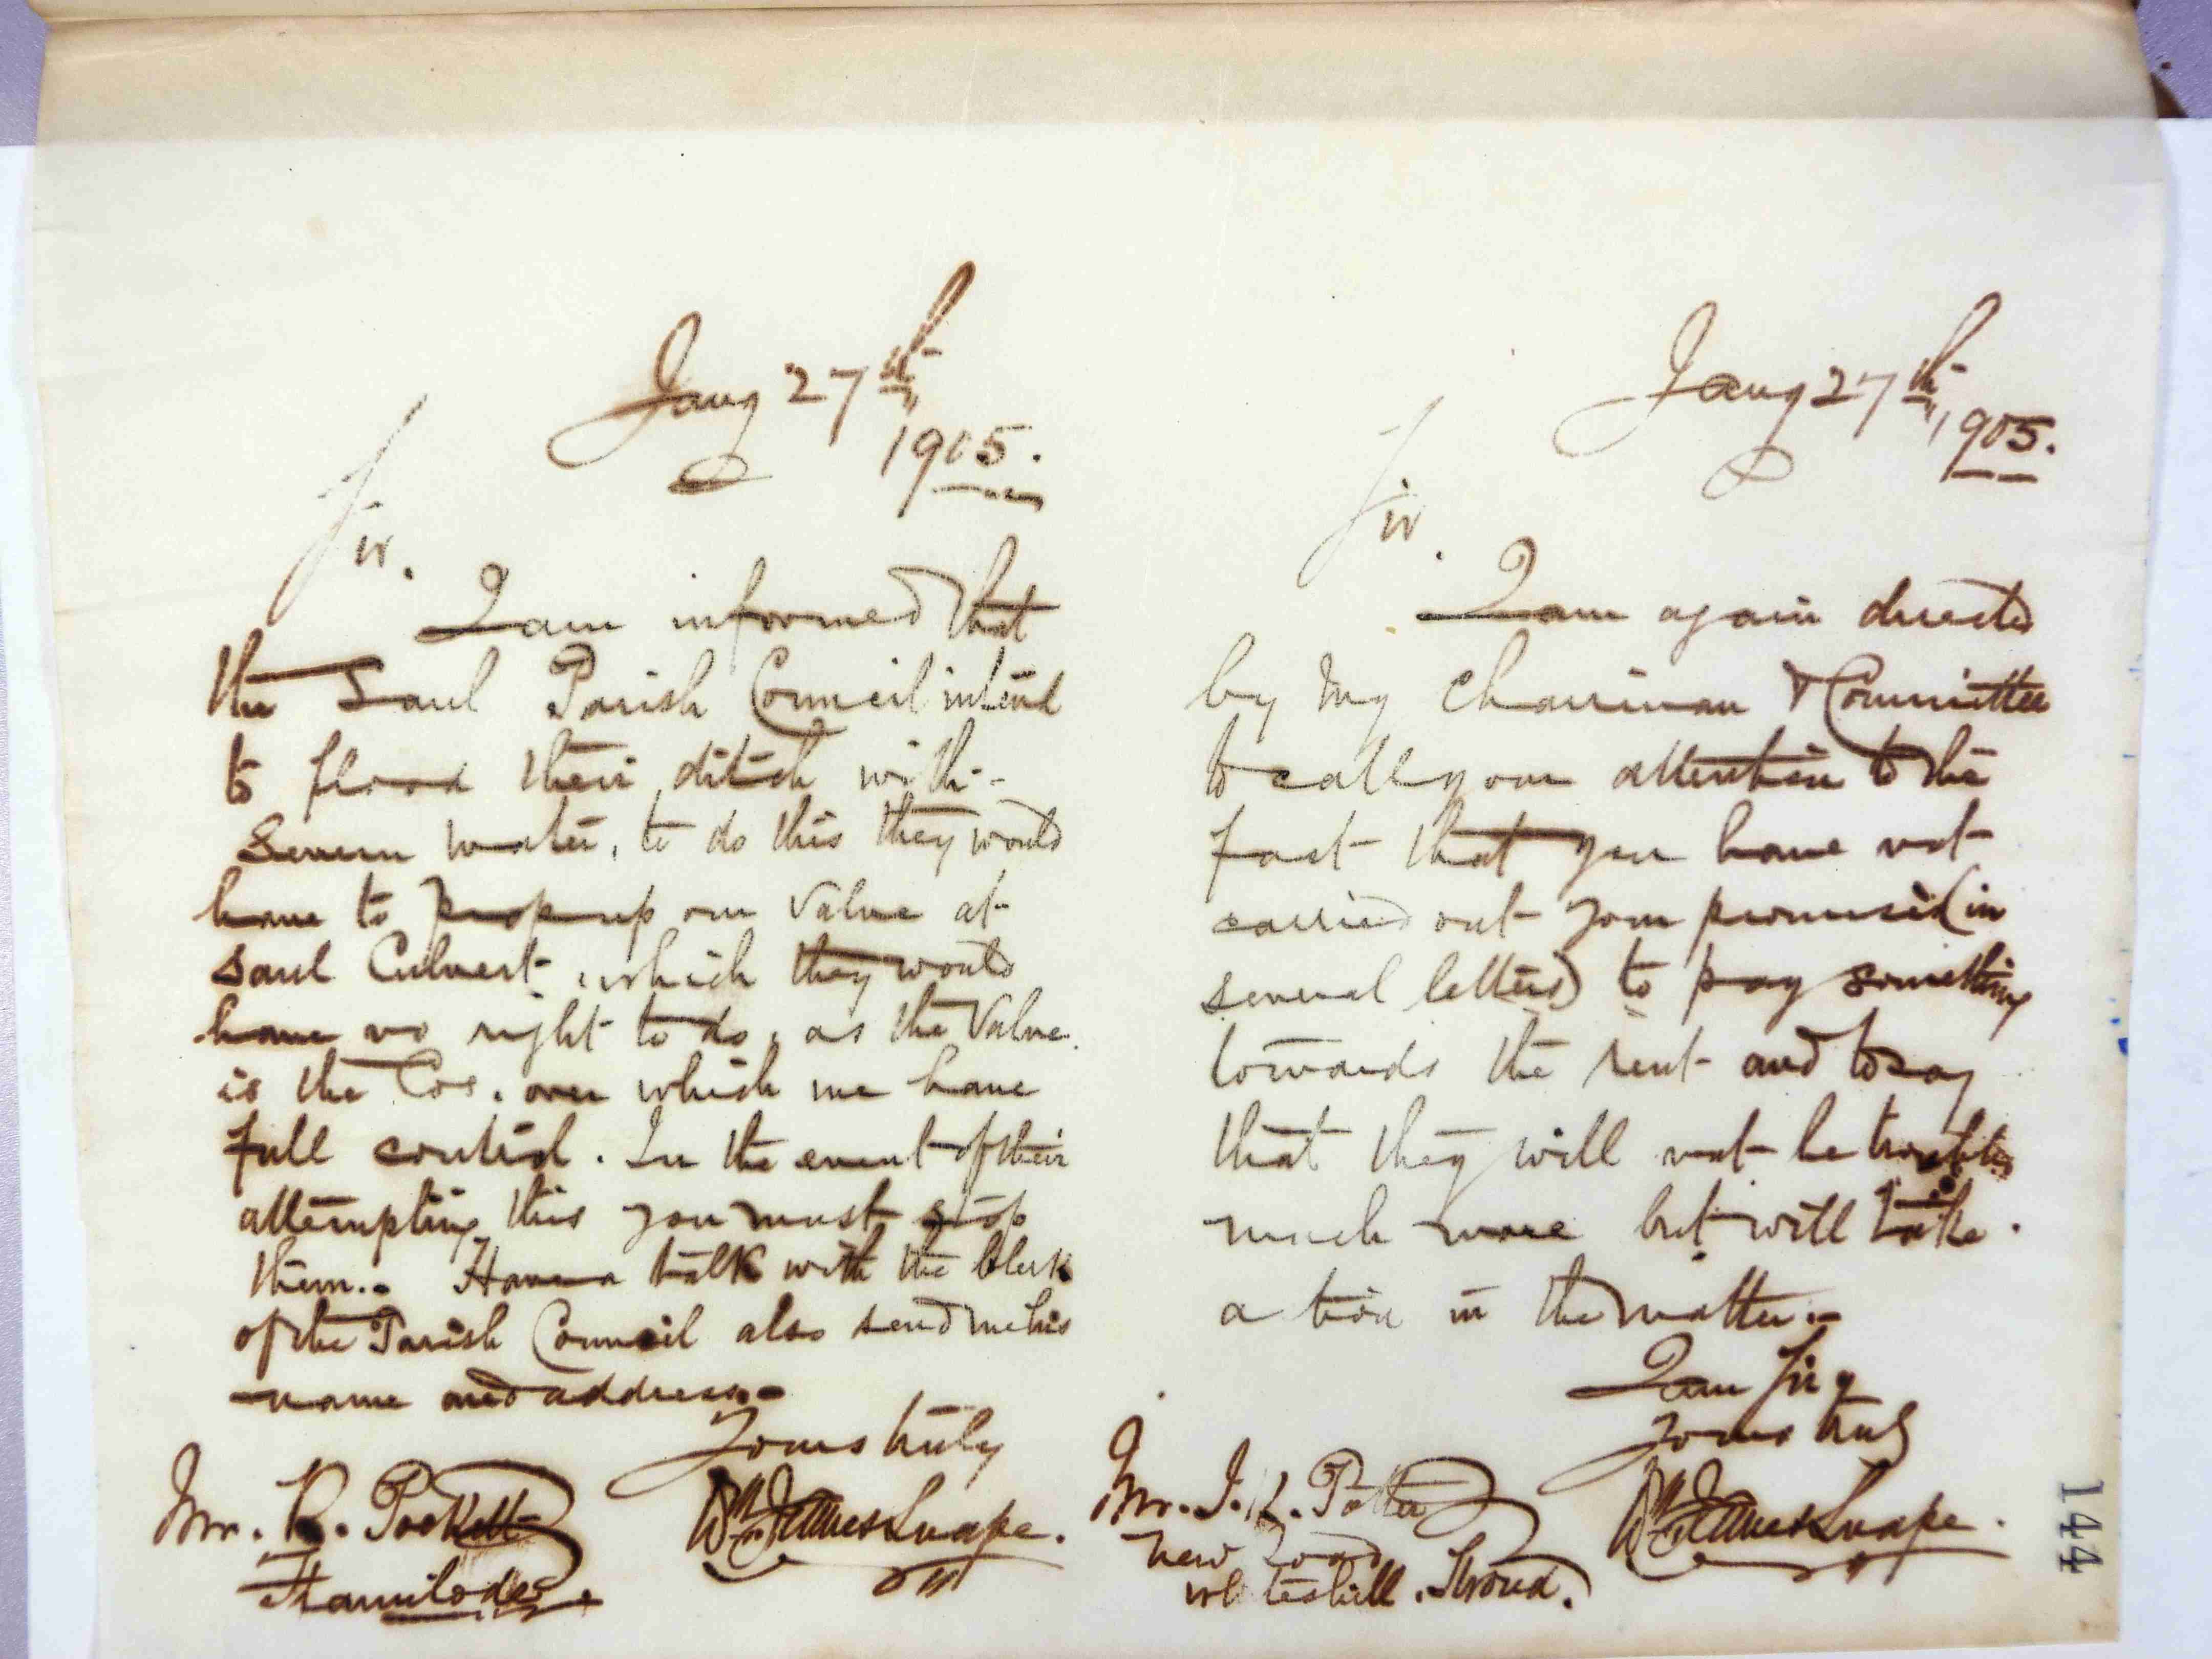 Jany 27th
1905.
Sir.
I am informed that
the Saul Parish Council intend
to flood their ditch with
Severn water, to do this they would
have to prop up our Valve at
Saul Culvert, which they would
have no right to do, as the Valve
is the Cos. over which we have
full control. In the event of their
attempting this you must stop
them.- Have a talk with the Clerk
of the Parish Council also send me his
name and address.-
Yours truly
Wm. James Snape.
Mr. R. Pockett
Framilode
Jany 27th 1905.
Sir.
I am again directed
by my Chairman & Committee
to call your attention to the
fact that you have not
carried out your promised (in
several letters) to pay something
towards the rent and to say
that they will not be troubled
much more but will take
action in the matter.-
I am Sir
Yours truly
Wm. James Snape.
Mr. J. Potter
New Road
Whiteshill. Stroud.
144